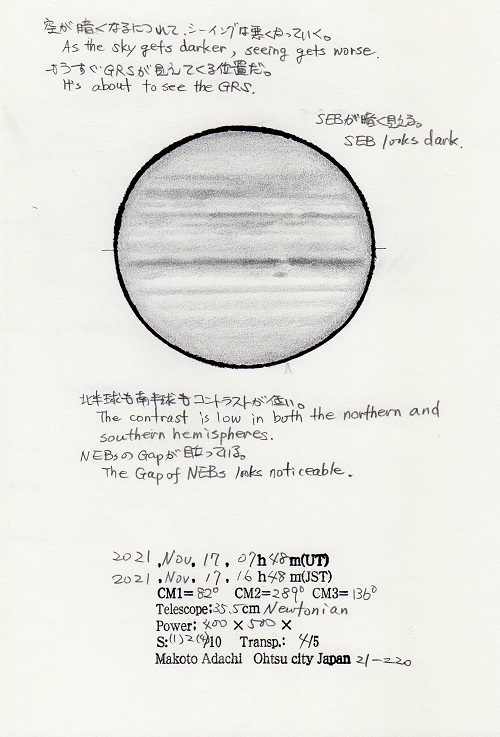 空が暗くなるにつれて、シーイングは悪くなっていく。
As the sky gets darker, seeing gets worse.
もうすぐGRSが見えてくる位置だ。
It's about to see the GRS.
SEBが暗く見える。
SEB looks dark.
北半球も南半球もコントラストが低い。
The contrast is low in both the northern and
southern hemispheres.
NEBsのGapが目立っている。
The Gap of NEBs looks noticeable.
2021 .Nov. 17, 07h48m(UT)
2021 .Nov. 17, 16h48m(JST)
CM1=82° CM2=289° CM3=136°
Telescope:35.5cm Newtonian
Power: 400 × 500 ×
S:(1)2(4)/10 Transp.: 4/5
Makoto Adachi Ohtsu city Japan 21-220